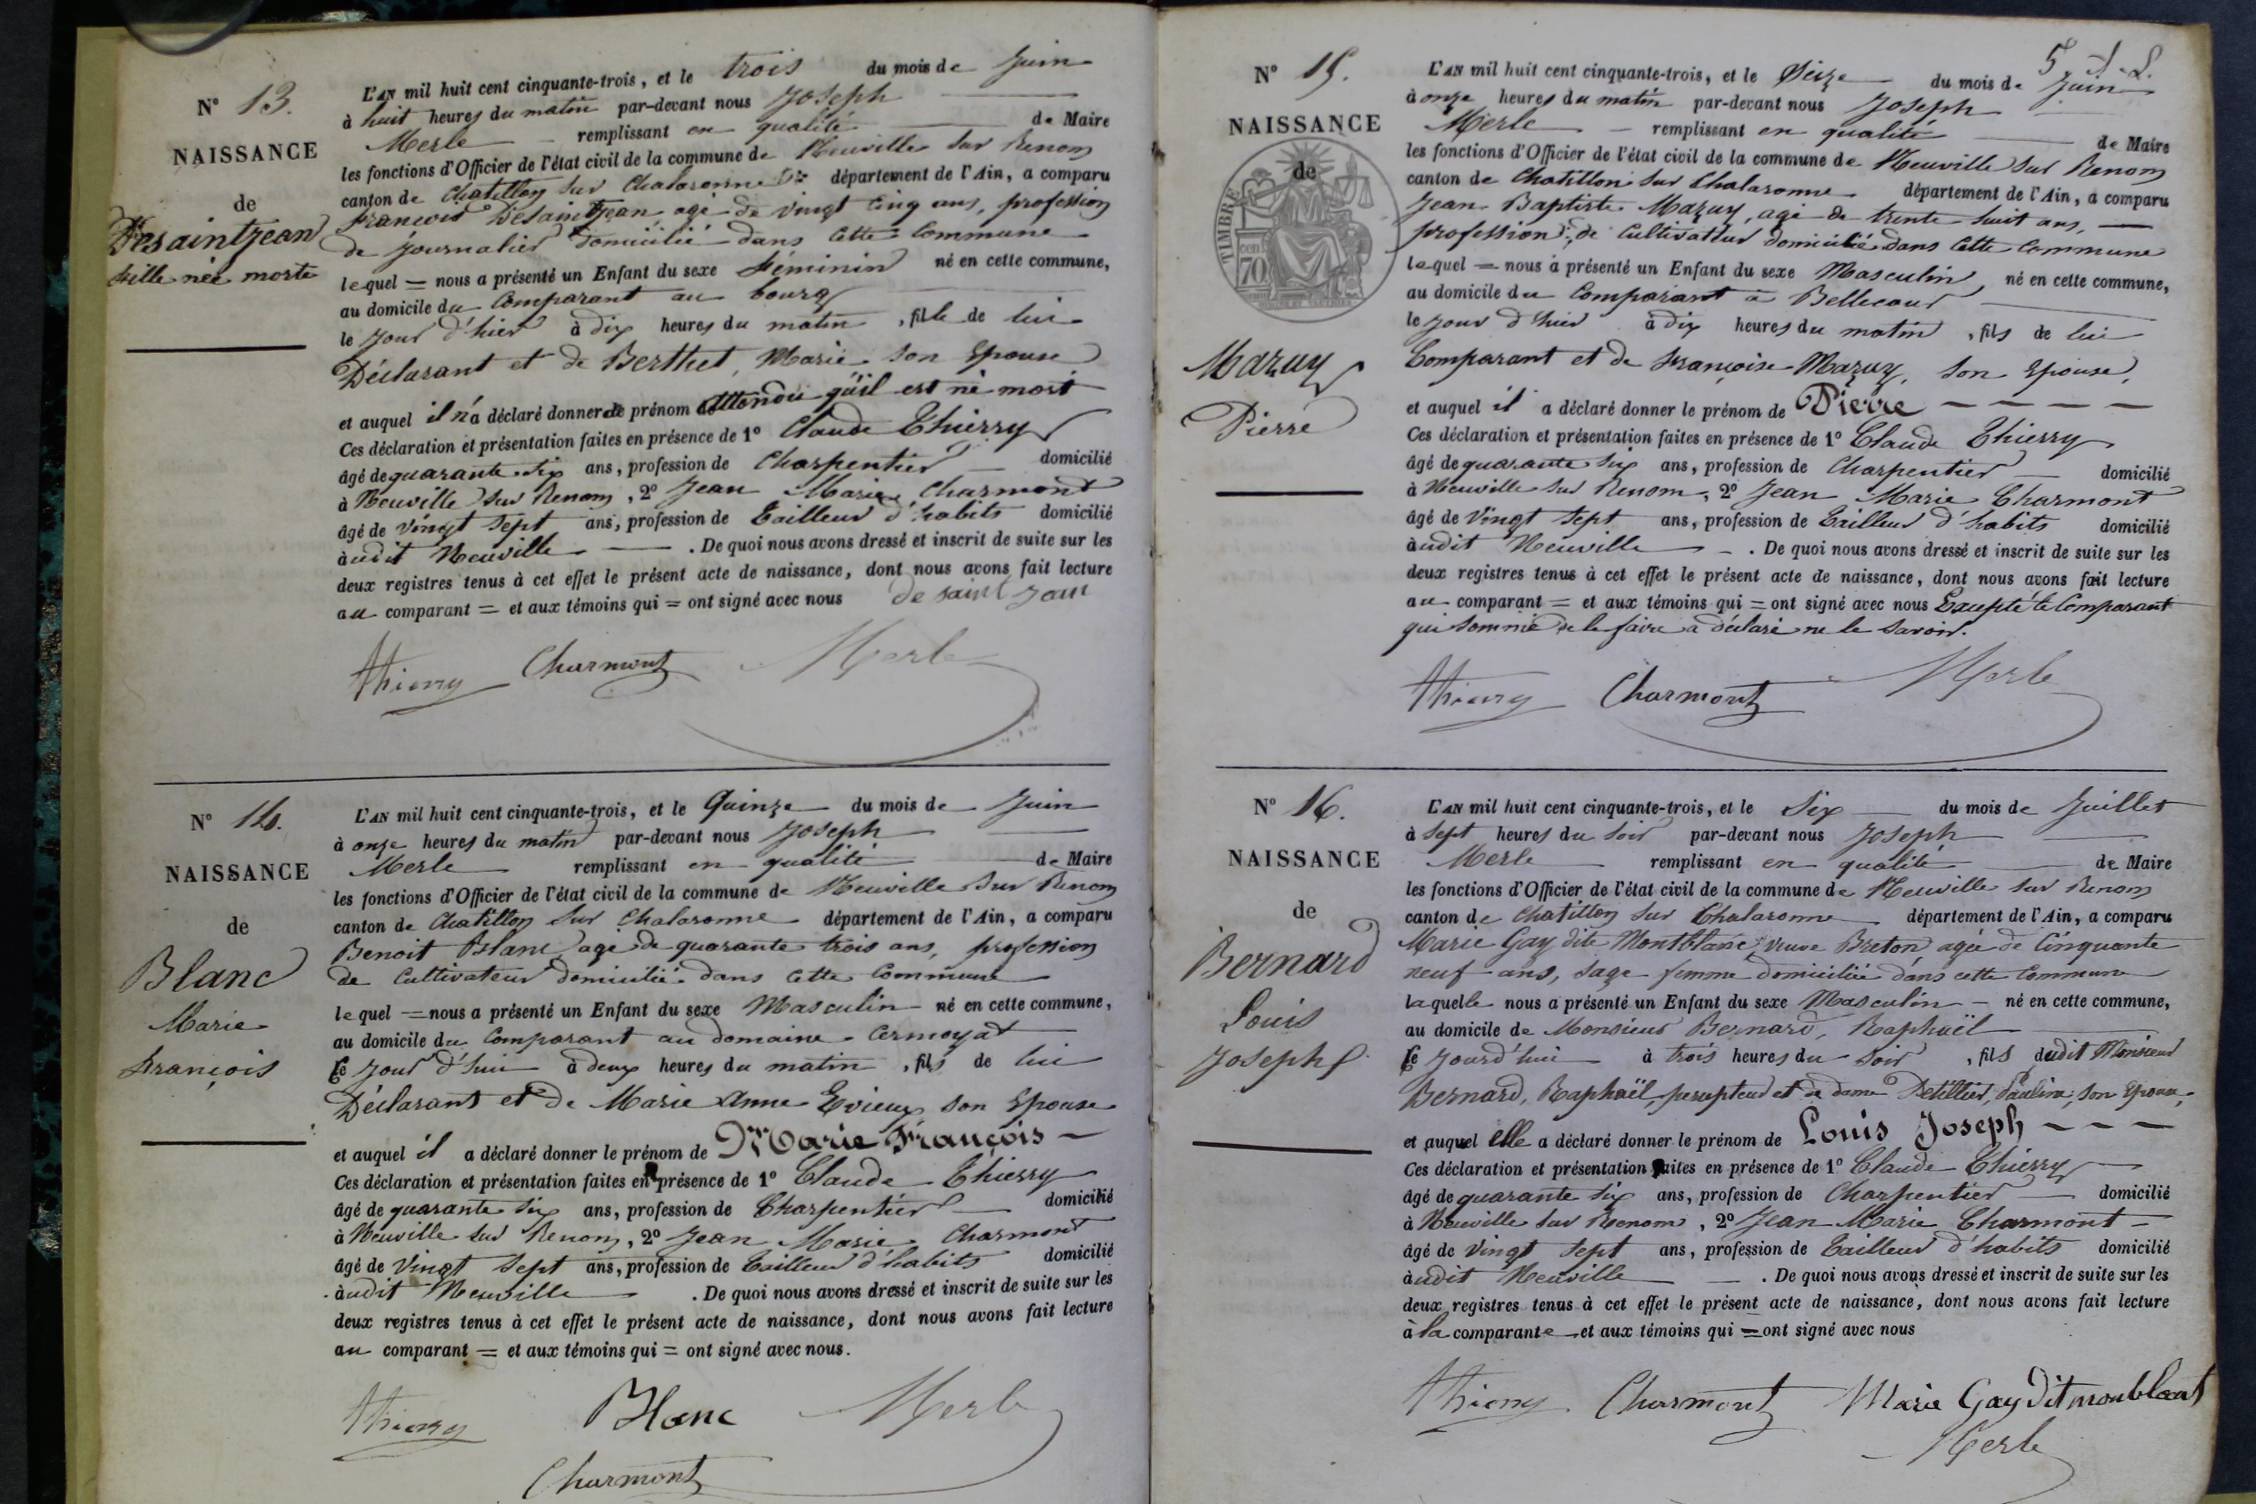 N° 13.
NAISSANCE
de
Desaintjean
fille née morte
L'AN mil huit cent cinquante-trois, et le trois du mois de Juin
à huit heures du matin par-devant nous Joseph
Merle remplissant en qualité de Maire
les fonctions d'Officier de l'état civil de la commune de Neuville sur Renom
canton de Chatillon sur Chalaronne département de l'Ain, a comparu
François Desaintjean agé de vingt cinq ans, profession
de journalier domicilié dans cette Commune
lequel = nous a présenté un Enfant du sexe féminin né en cette commune,
au domicile du Comparant au bourg
le jour d'hier à dix heures du matin, fille de lui
Déclarant et de Berthet, Marie son Epouse
et auquel il n'a déclaré donner de prénom attendu qu'il est né mort
Ces déclaration et présentation faites en présence de 1° Claude Thierry
âgé de quarante six ans, profession de Charpentier domicilié
à Neuville sur Renom, 2° Jean Marie Charmont
âgé de vingt sept ans, profession de Tailleur d'habits domicilié
àudit Neuville . De quoi nous avons dressé et inscrit de suite sur les
deux registres tenus à cet effet le présent acte de naissance, dont nous avons fait lecture
au comparant = et aux témoins qui = ont signé avec nous de saint jean
Thierry Charmont Merle
N° 14.
NAISSANCE
de
Blanc
Marie
François
L'AN mil huit cent cinquante-trois, et le Quinze du mois de Juin
à onze heures du matin par-devant nous Joseph
Merle remplissant en qualité de Maire
les fonctions d'Officier de l'état civil de la commune de Neuville sur Renom
canton de Chatillon sur Chalaronne département de l'Ain, a comparu
Benoit Blanc agé de quarante trois ans, profession
de Cultivateur domicilié dans cette Commune
lequel = nous a présenté un Enfant du sexe Masculin né en cette commune,
au domicile du Comparant au domaine Cermoyat
Ce jour d'hui à deux heures du matin, fils de lui
Déclarant et de Marie Anne Evieux son Epouse
et auquel il a déclaré donner le prénom de Marie François
Ces déclaration et présentation faites en présence de 1° Claude Thierry
âgé de quarante six ans, profession de Charpentier domicilié
à Neuville sur Renom, 2° Jean Marie Charmont
âgé de Vingt Sept ans, profession de Tailleur d'habits domicilié
àudit Neuville . De quoi nous avons dressé et inscrit de suite sur les
deux registres tenus à cet effet le présent acte de naissance, dont nous avons fait lecture
au comparant = et aux témoins qui = ont signé avec nous.
Thierry Blanc Merle
Charmont
5
N° 15.
NAISSANCE
de
TIMBRE
70
Mazuy
Pierre
L'AN mil huit cent cinquante-trois, et le Seize du mois de Juin
à onze heures du matin par-devant nous Joseph
Merle remplissant en qualité de Maire
les fonctions d'Officier de l'état civil de la commune de Neuville sur Renom
canton de Chatillon sur Chalaronne département de l'Ain, a comparu
Jean Baptiste Mazuy, agé de trente huit ans,
profession de Cultivateur domicilié dans cette Commune
lequel = nous a présenté un Enfant du sexe Masculin, né en cette commune,
au domicile du Comparant à Bellecour
le jour d'hier à dix heures du matin, fils de lui
Comparant et de Françoise Mazuy, son Epouse,
et auquel il a déclaré donner le prénom de Pierre
Ces déclaration et présentation faites en présence de 1° Claude Thierry
âgé de quarante six ans, profession de Charpentier domicilié
à Neuville sur Renom, 2° Jean Marie Charmont
âgé de Vingt Sept ans, profession de Tailleur d'habits domicilié
àudit Neuville . De quoi nous avons dressé et inscrit de suite sur les
deux registres tenus à cet effet le présent acte de naissance, dont nous avons fait lecture
au comparant = et aux témoins qui = ont signé avec nous Excepté le Comparant
qui sommé de le faire a déclaré ne le savoir.
Thierry Charmont Merle
N° 16.
NAISSANCE
de
Bernard
Louis
Joseph
L'AN mil huit cent cinquante-trois, et le Six du mois de Juillet
à Sept heures du soir par-devant nous Joseph
Merle remplissant en qualité de Maire
les fonctions d'Officier de l'état civil de la commune de Neuville sur Renom
canton de Chatillon sur Chalaronne département de l'Ain, a comparu
Marie Gay dite Montblanc, veuve Breton, agée de Cinquante
neuf ans, sage femme domiciliée dans cette Commune
laquelle nous a présenté un Enfant du sexe Masculin né en cette commune,
au domicile de Monsieur Bernard, Raphaël
Ce jourd'hui à trois heures du soir, fils dudit Monsieur
Bernard, Raphaël, percepteur et de dame Detillier, Pauline, son Epouse,
et auquel elle a déclaré donner le prénom de Louis Joseph
Ces déclaration et présentation faites en présence de 1° Claude Thierry
âgé de quarante six ans, profession de Charpentier domicilié
à Neuville sur Renom, 2° Jean Marie Charmont
âgé de Vingt Sept ans, profession de Tailleur d'habits domicilié
àudit Neuville . De quoi nous avons dressé et inscrit de suite sur les
deux registres tenus à cet effet le présent acte de naissance, dont nous avons fait lecture
à la comparante et aux témoins qui = ont signé avec nous
Thierry Charmont Marie Gay dit moublant
Merle